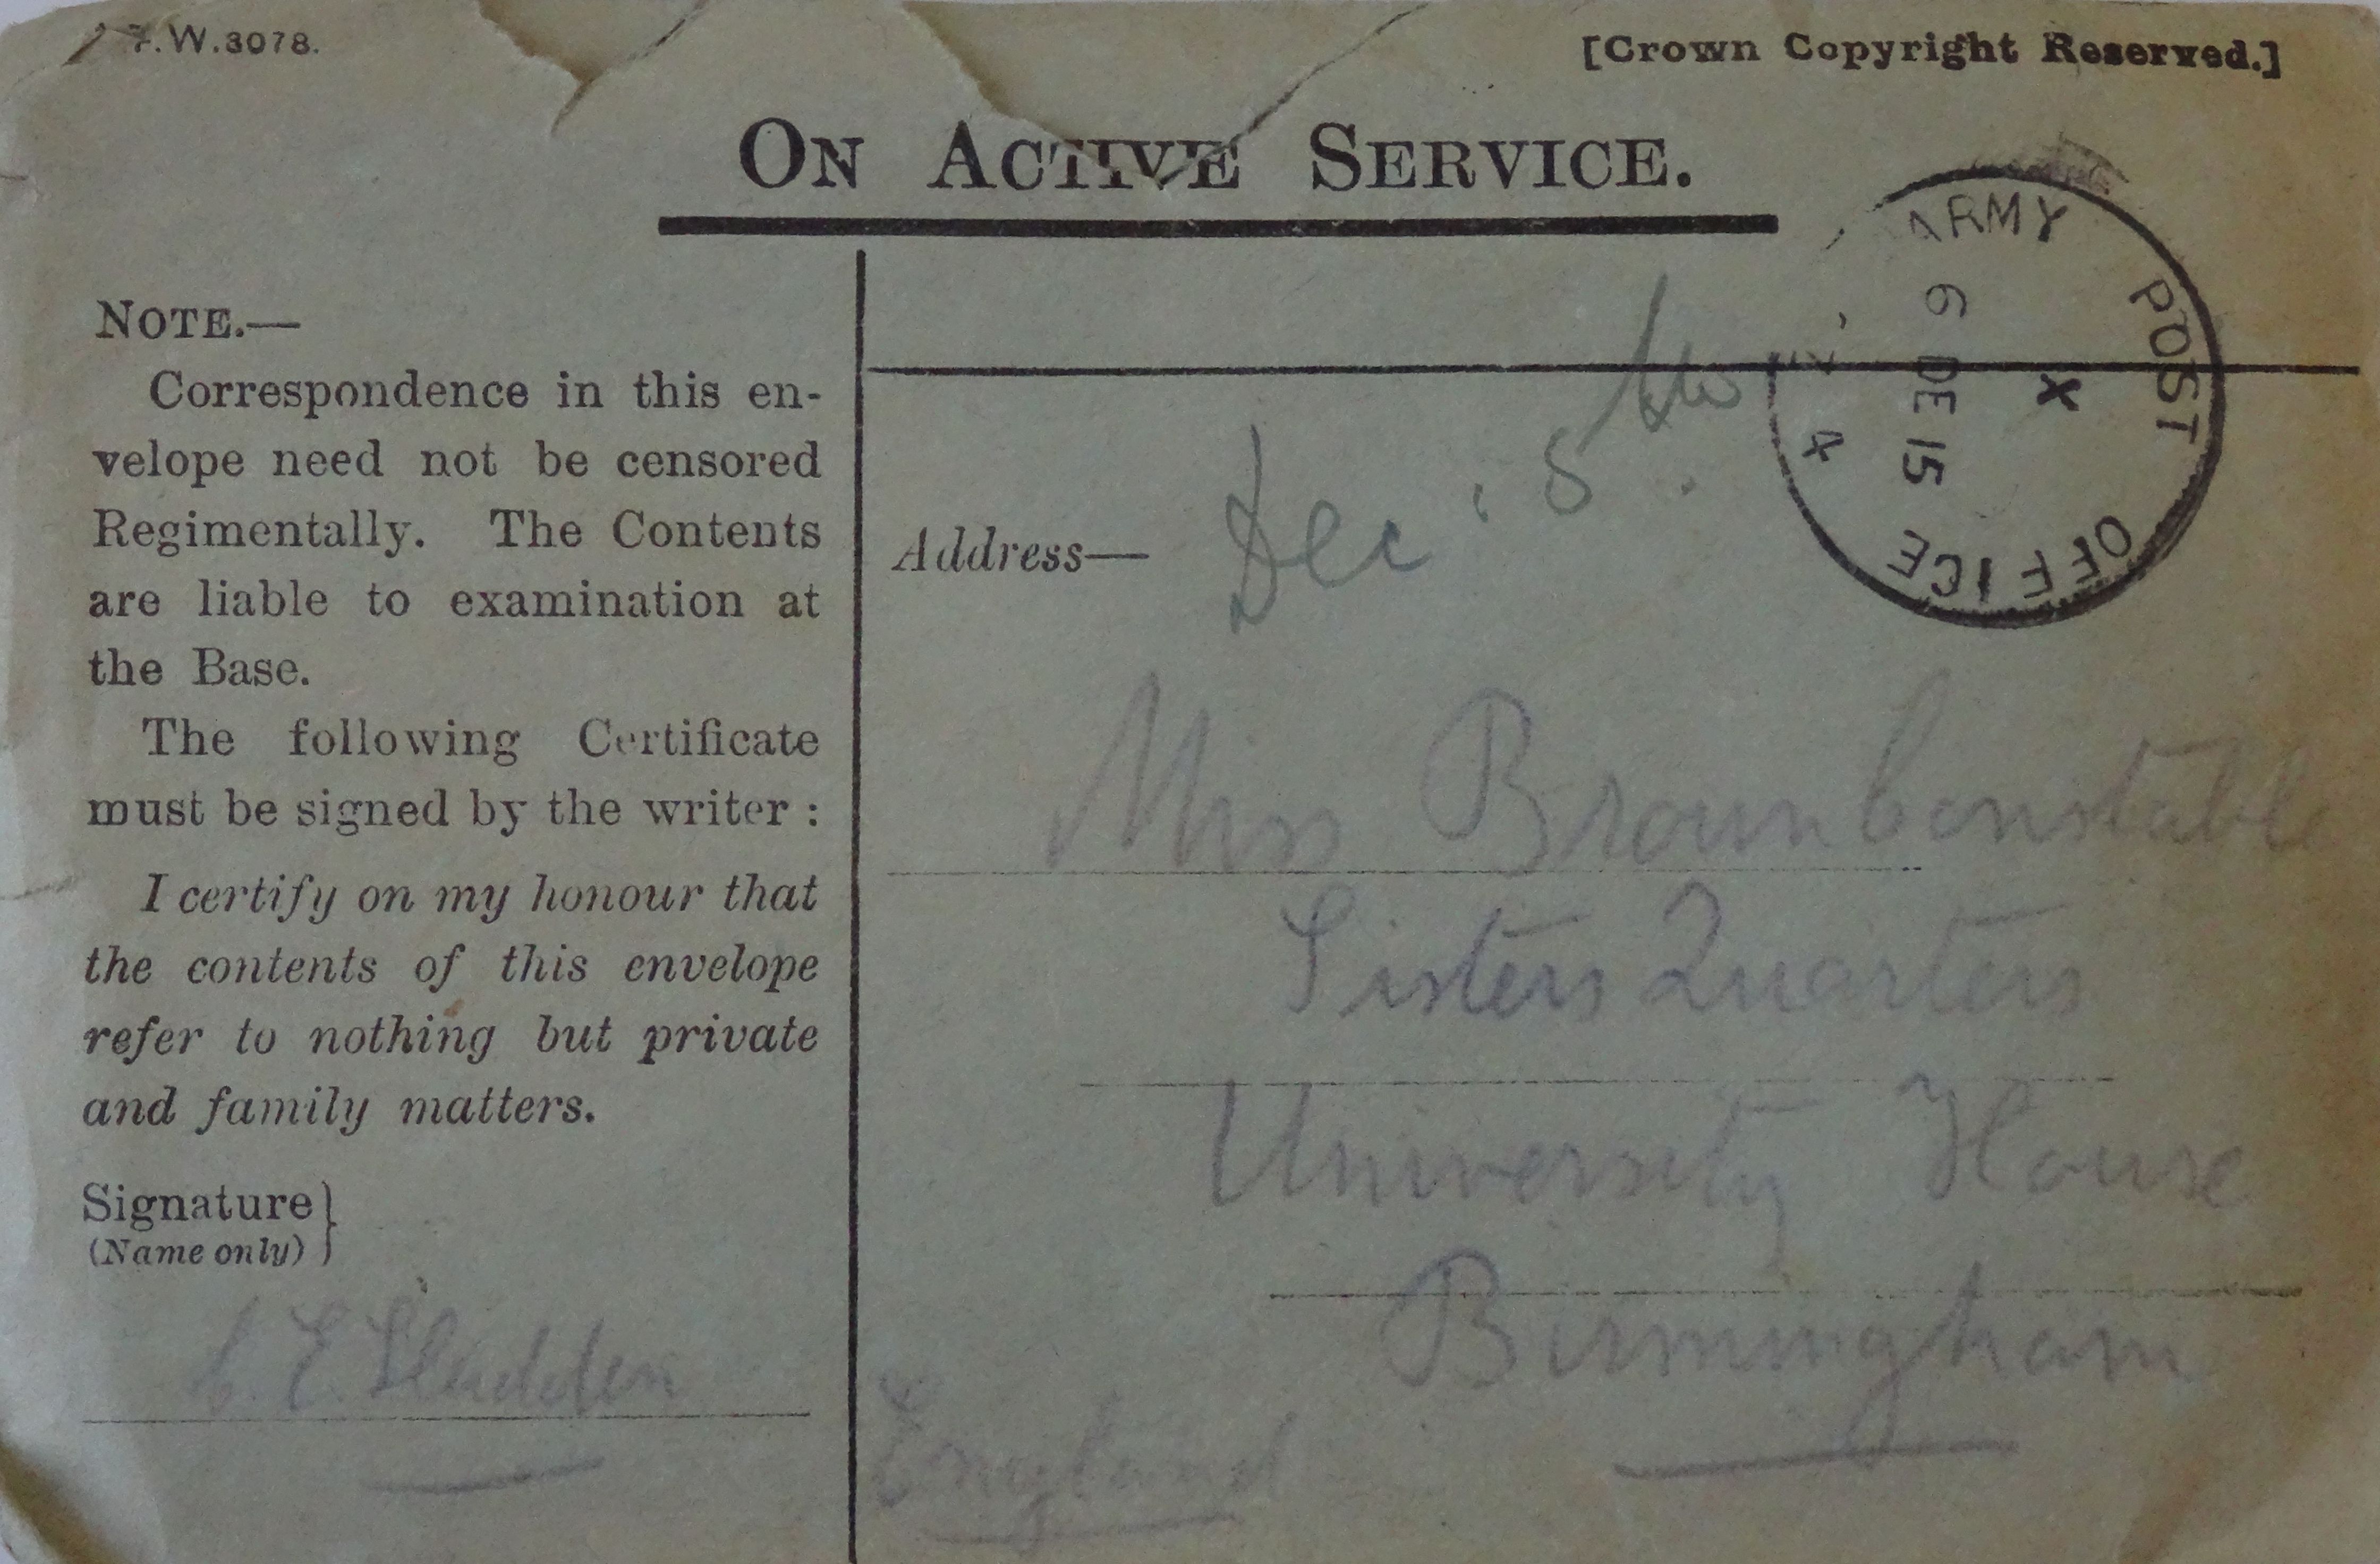 F.W.3078.
[Crown Copyright Reserved.]
ON ACTIVE SERVICE.
NOTE.—
Correspondence in this en-
velope need not be censored
Regimentally. The Contents
are liable to examination at
the Base.
The following Certificate
must be signed by the writer :
I certify on my honour that
the contents of this envelope
refer to nothing but private
and family matters.
Signature}
(Name only)
C. E. Sladden
ARMY POST OFFICE
X
6 DE 15
4
Dec: 5th.
Address—
Miss Brown Constable
Sisters Quarters
University House
Birmingham
England